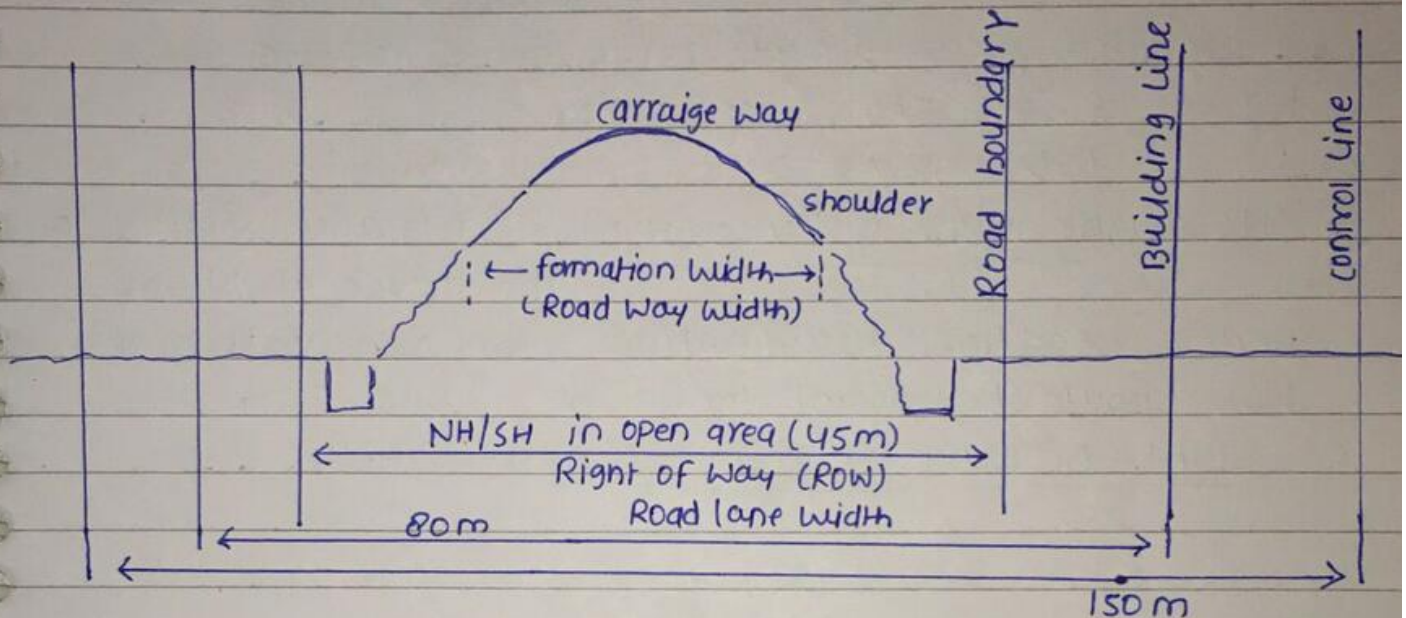 carraige way
shoulder
← formation width →
(Road way width)
Road boundary
Building line
control line
NH/SH in open area (45m)
Right of way (ROW)
Road lane width
80m
150m